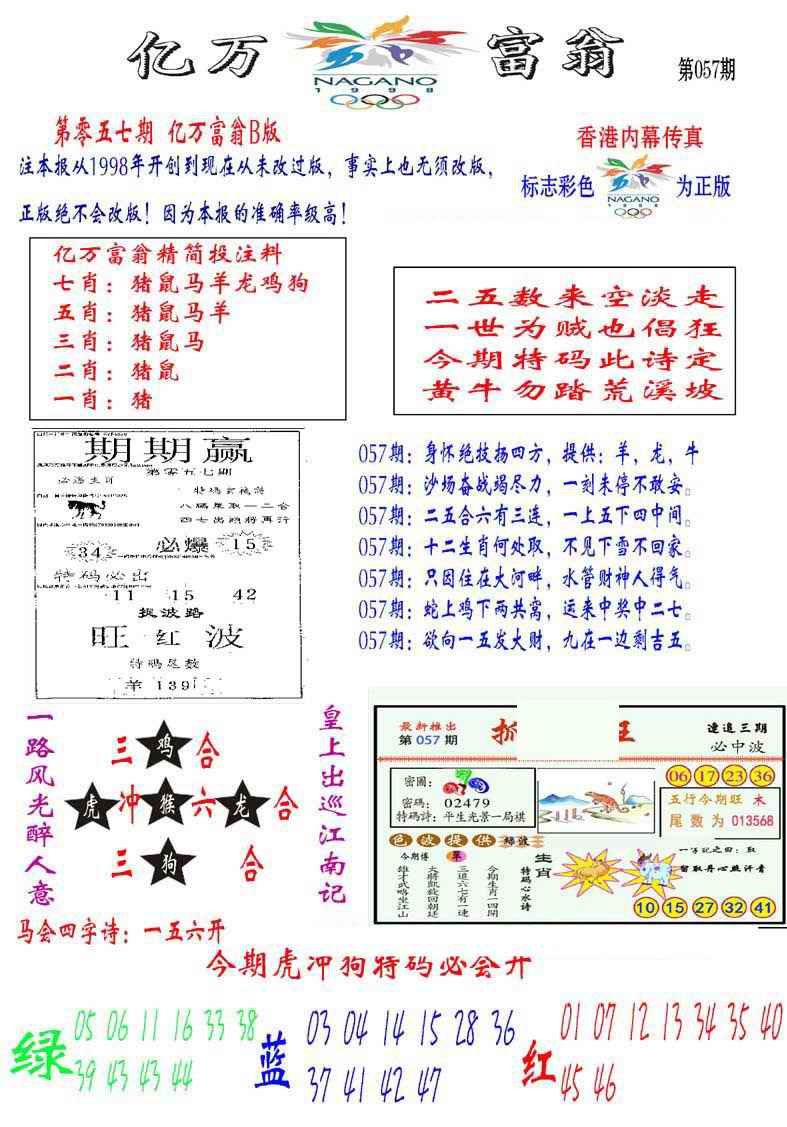 亿万富翁
NAGANO
1998
第057期
第零五七期 亿万富翁B版
香港内幕传真
注本报从1998年开创到现在从未改过版，事实上也无须改版，
标志彩色 NAGANO 1998 为正版
正版绝不会改版！因为本报的准确率级高！
亿万富翁精简投注料
七肖：猪鼠马羊龙鸡狗
五肖：猪鼠马羊
三肖：猪鼠马
二肖：猪鼠
一肖：猪
二五数来空淡走
一世为贼也倡狂
今期特码此诗定
黄牛勿踏荒溪坡
期期赢
第零五七期
四七出頭将再行
34 必爆 15
特码必出
11 15 42
捉波路
旺红波
特码尾数
羊 139
057期：身怀绝技扬四方，提供：羊，龙，牛
057期：沙场奋战竭尽力，一刻未停不敢妄。
057期：二五合六有三连，一上五下四中间。
057期：十二生肖何处取，不见下雪不回家。
057期：只因住在大河畔，水管财神人得气。
057期：蛇上鸡下两共窝，运来中奖中二七。
057期：欲向一五发大财，九在一边剩吉五。
一路风光醉人意
三 鸡 合
虎 冲 猴 六 龙 合
三 狗 合
皇上出巡江南记
马会四字诗：一五六开
最新推出
第 057 期
連追三期
必中波
06 17 23 36
密圖：
密碼： 02479
特碼詩：平生光景一局棋
五行今期旺 木
尾数为 013568
色波提供 綠波
今期傅 草
雄才武略坐江山
大將凱旋回朝廷
三道六七有一連
今期生肖一四開
特碼心水诗
生肖
留取丹心照汗青
10 15 27 32 41
今期虎冲狗特码必会开
绿 05 06 11 16 33 38
39 43 43 44
蓝 03 04 14 15 28 36
37 41 42 47
红 01 07 12 13 34 35 40
45 46